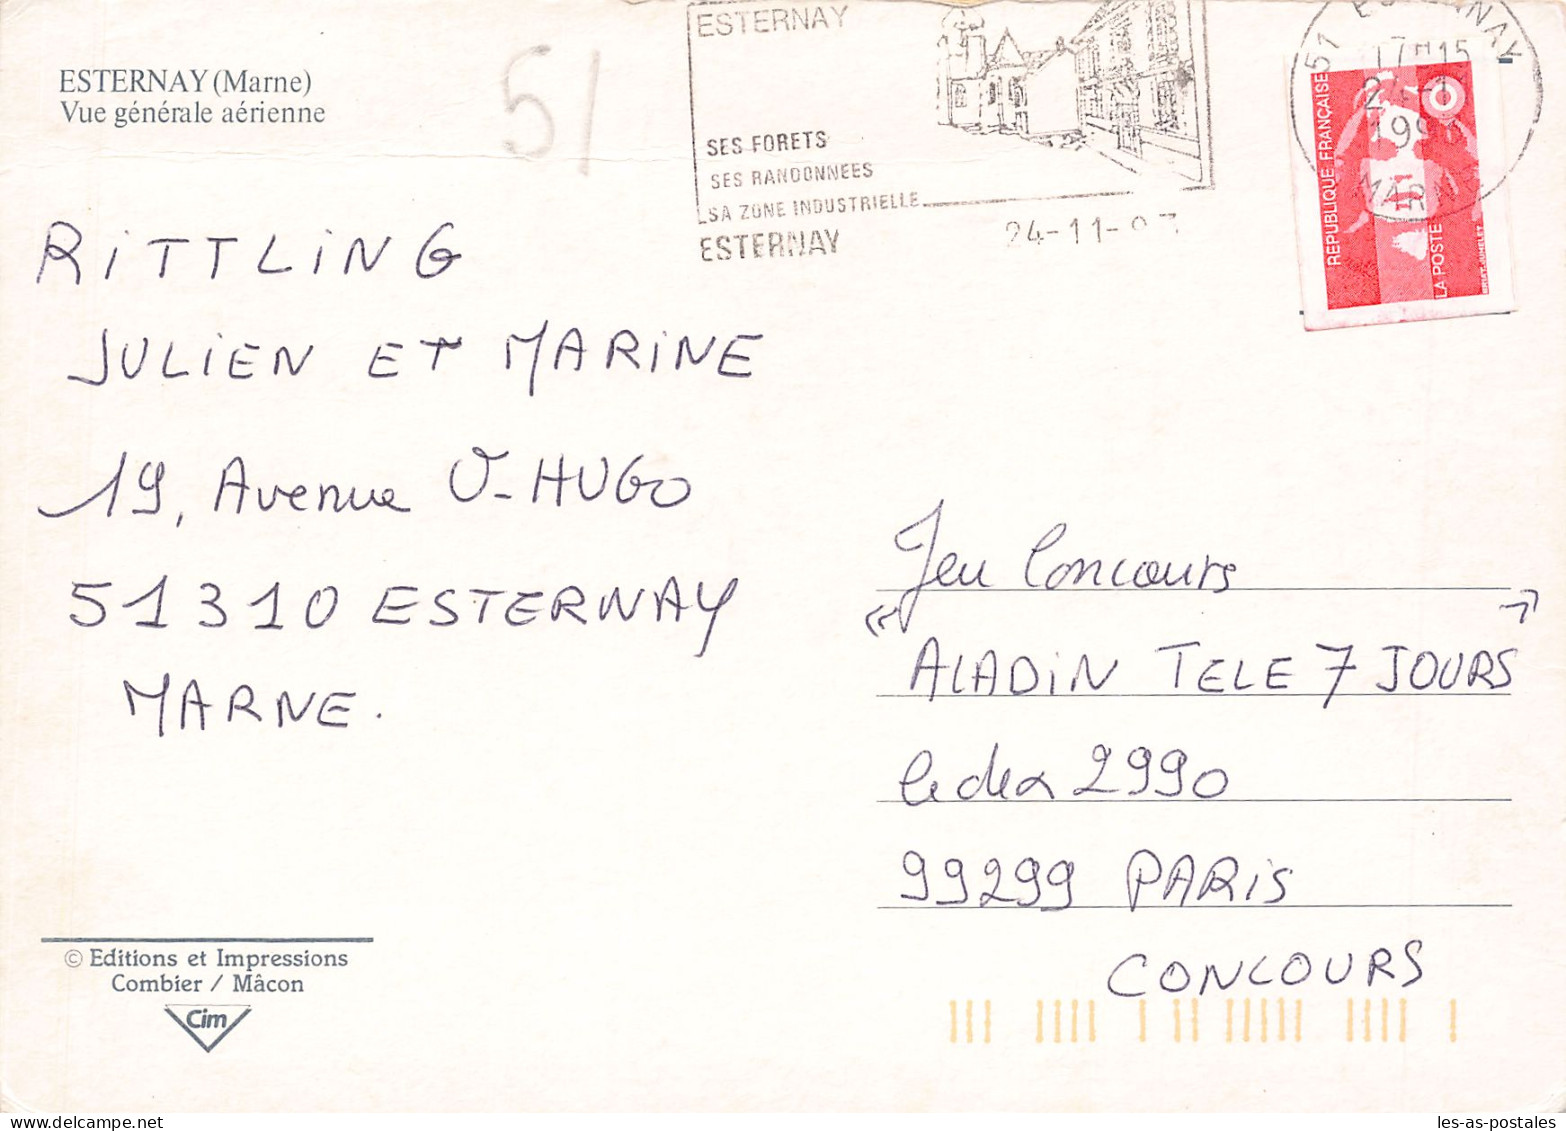 ESTERNAY (Marne)
Vue générale aérienne
51
ESTERNAY
SES FORETS
SES RANDONNEES
SA ZONE INDUSTRIELLE
ESTERNAY
24-11-93
51 ESTERNAY
17H15
24-11
1993
MARNE
REPUBLIQUE FRANÇAISE
LA POSTE
RITTLING
JULIEN ET MARINE
19, Avenue V-HUGO
51310 ESTERNAY
MARNE.
Jeu Concours
« ALADIN TELE 7 JOURS »
Cedex 2990
99299 PARIS
CONCOURS
© Editions et Impressions
Combier / Mâcon
Cim
les-as-postales